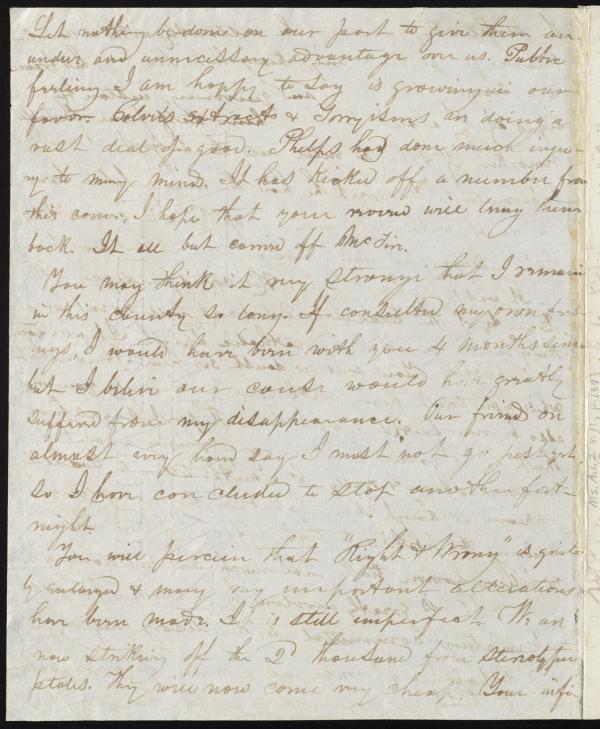 Let nothing be done on our part to give them an
undue and unnecessary advantage over us. Public
feeling I am happy to say is growing in our
favor. Colver's extracts & Torryisms are doing a
vast deal of good. Phelps has done much inju-
ry to many minds. It has kicked off a number from
this course, I hope that your review will bring them
back. It all but carried off McFir.
You may think it very strange that I remain
in this country so long. If consulted my own feel-
ings I would have been with you 4 months since
but I believe our cause would have greatly
suffered from my disappearance. Our friends on
almost every hand say I must not go just yet
so I have concluded to stop another fort-
night
You will perceive that "Right & Wrong" is great-
ly enlarged & many very important alterations
have been made. It is still imperfect. We are
now striking off the 2d thousand from stereotype
plates. They will now come very cheap. Your infi-